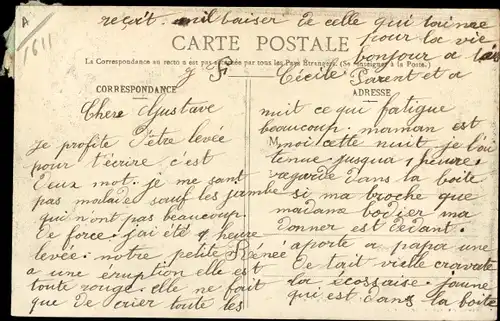 A
1611
reçoit mil baiser de celle qui t'aime
pour la vie
bonjour a tes
Parent et a
Cécile
CARTE POSTALE
La Correspondance au recto n'est pas acceptée par tous les Pays Étrangers. (Se renseigner à la Poste.)
CORRESPONDANCE
ADRESSE
Chere Gustave
je profite d'être levée
pour t'écrire c'est
deux mot. je me sant
pas malade sauf les jambe
qui n'ont pas beaucoup
de force. j'ai été 1 heure
levée. notre petite Rénée
a une éruption elle est
toute rouge. elle ne fait
que de crier toute les
nuit ce qui fatigue
beaucoup. maman est
M moi cette nuit je l'ai
tenue jusqua 1 heure.
regarde dans la boite
si ma broche que
madame bodier ma
donner est dedant.
aporte a papa une
de tait vielle cravate
la écossaise jaune
qui est dans la boite